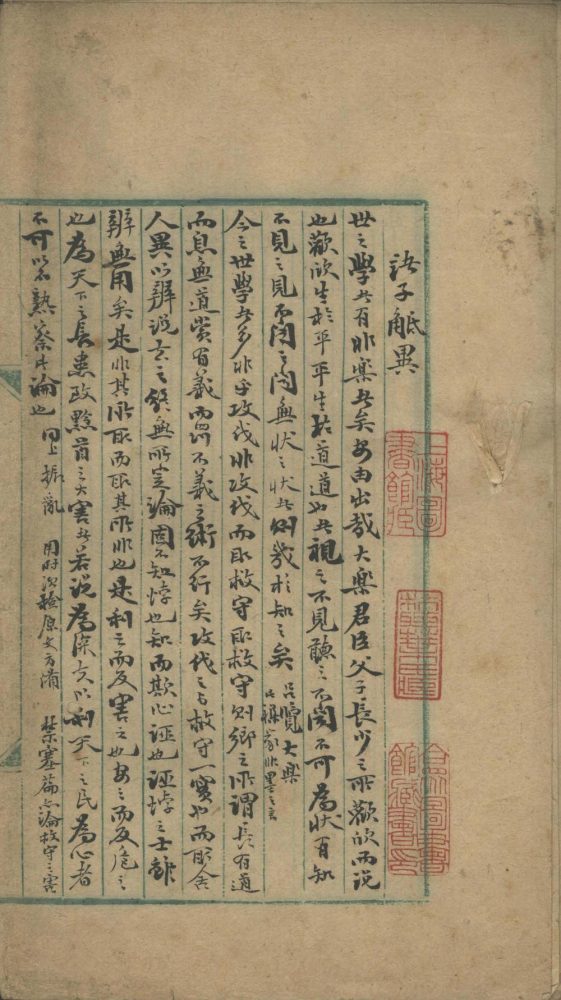 諸子觝異
世之學者有非樂者矣安由出哉大樂君臣父子長少之所歡欣而說
也歡欣生於平平生於道道也者視之不見聽之不聞不可為狀有知
不見之見不聞之聞無狀之狀者則幾於知之矣 呂覽大樂
此襍家非墨之言
今之世學者多非乎攻伐非攻伐而取救守取救守則鄉之所謂長有道
而息無道賞有義而罰不義之術不行矣攻伐之與救守一實也而取舍
人異以辨說去之終無所定論固不知悖也知而欺心誣也誣悖之士雖
辨無用矣是非其所取而取其所非也是利之而反害之也安之而反危之
也為天下之長患致黔首之大害者若說為深夫以利天下之民為心者
不可以不熟察此論也 同上振亂 用時須檢原文方滿 禁塞篇亦論救守之害
上海圖書館藏
合眾圖書館藏書印